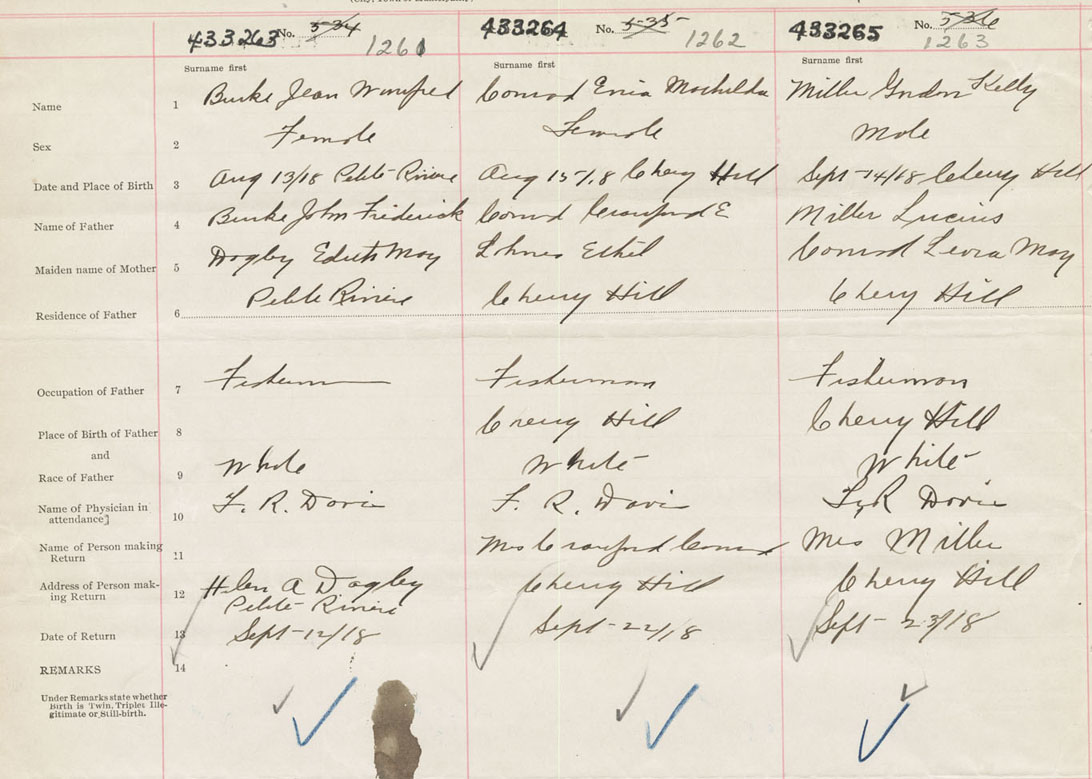 433263 No. 534 1261
433264 No. 535 1262
433265 No. 536 1263
Surname first Surname first Surname first
Name 1 Burke Jean Winifred Conrad Mathilda Miller Gordon Kelly
Sex 2 Female Female Male
Date and Place of Birth 3 Aug 13/18 Petite Riviere Aug 15/18 Cherry Hill Sept 14/18 Cherry Hill
Name of Father 4 Burke John Frederick Conrad Crawford E Miller Lucius
Maiden name of Mother 5 Edith May Lohnes Ethel Conrad May
Residence of Father 6 Petite Riviere Cherry Hill Cherry Hill
Occupation of Father 7 Fisherman Fisherman Fisherman
Place of Birth of Father 8 Cherry Hill Cherry Hill
and
Race of Father 9 White White White
Name of Physician in
attendance 10 F. R. Davis F. R. Davis F. R Davis
Name of Person making
Return 11 Mrs Crawford Conrad Mrs Miller
Address of Person mak-
ing Return 12 Helen A Cherry Hill Cherry Hill
Petite Riviere
Date of Return 13 Sept 12/18 Sept 22/18 Sept 23/18
REMARKS 14
Under Remarks state whether
Birth is Twin, Triplet Ille-
gitimate or Still-birth.